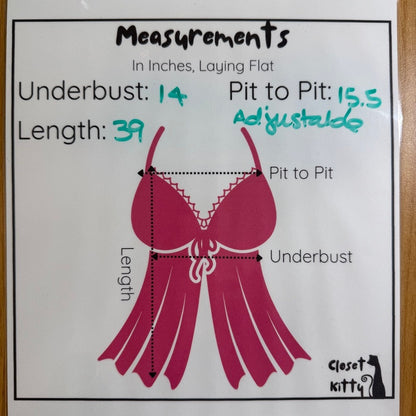 Measurements
In Inches, Laying Flat
Underbust: 14 Pit to Pit: 15.5
Length: 39 Adjustable
Pit to Pit
Underbust
Length
Closet
Kitty